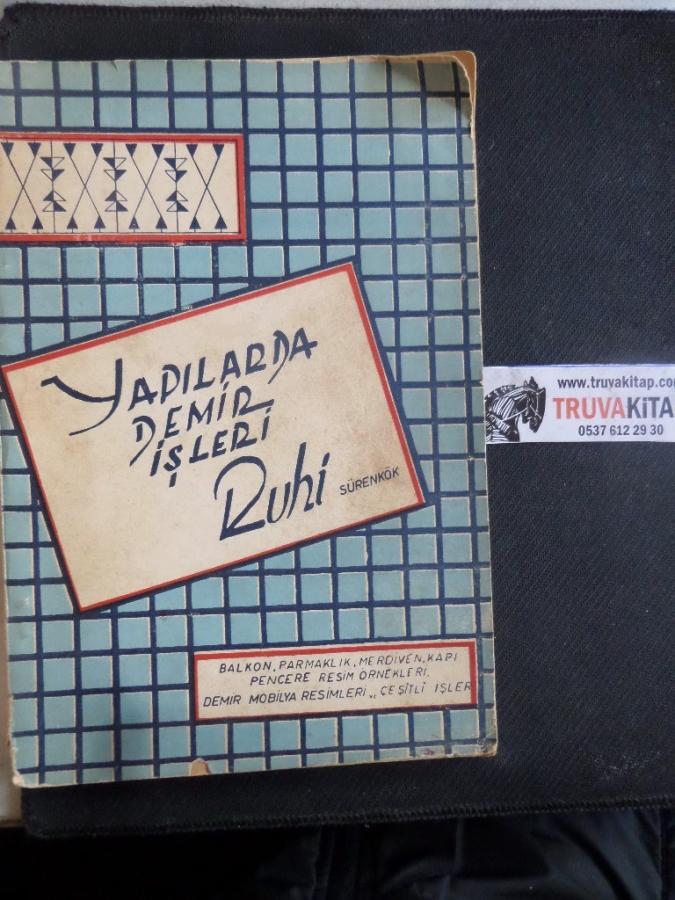 YAPILARDA
DEMİR
İŞLERİ
Ruhi SÜRENKÖK
BALKON, PARMAKLIK, MERDİVEN, KAPI
PENCERE RESİM ÖRNEKLERİ.
DEMİR MOBİLYA RESİMLERİ ve ÇEŞİTLİ İŞLER
www.truvakitap.com
TRUVAKİTA
0537 612 29 30